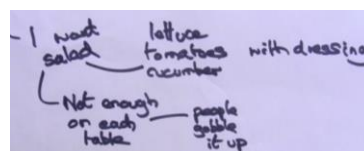 - I want
salad
lettuce
tomatoes
cucumber
with dressing
Not enough
on each
table
people
gobble
it up